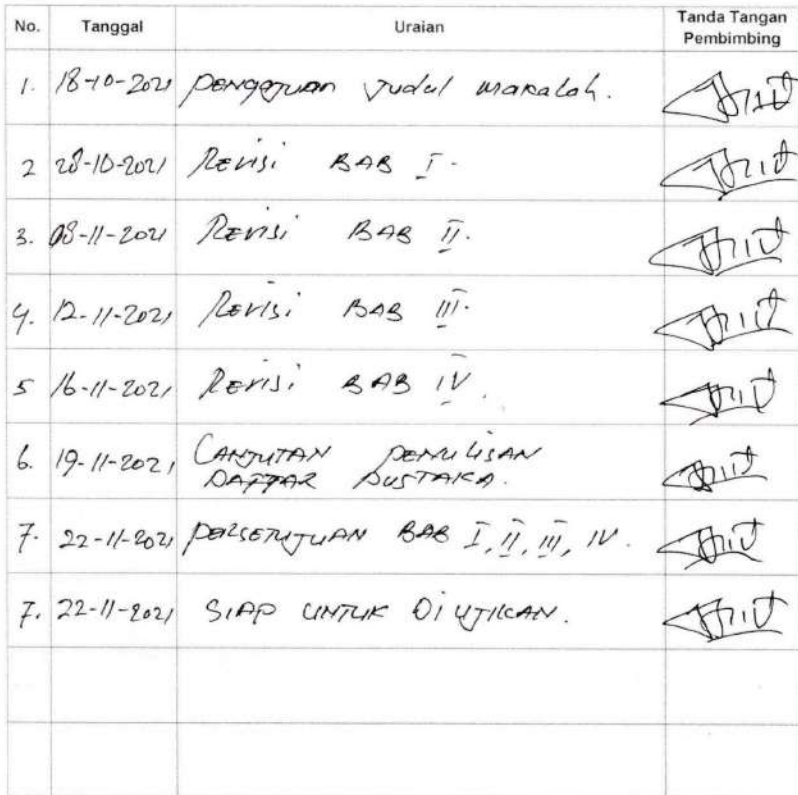 No. Tanggal Uraian Tanda Tangan
Pembimbing
1. 18-10-2021 Pengajuan Judul makalah.
2 28-10-2021 Revisi BAB I.
3. 08-11-2021 Revisi BAB II.
4. 12-11-2021 Revisi BAB III.
5 16-11-2021 Revisi BAB IV.
6. 19-11-2021 LANJUTAN PENULISAN
DAFTAR PUSTAKA.
7. 22-11-2021 PERSETUJUAN BAB I, II, III, IV.
7. 22-11-2021 SIAP UNTUK DIUJIKAN.